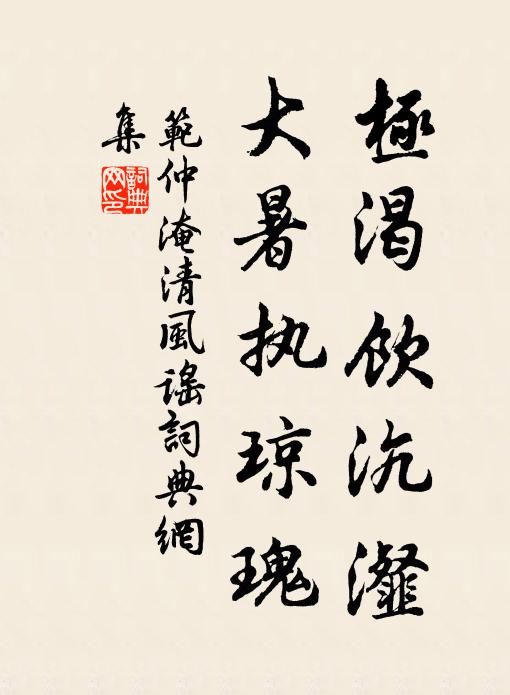 極渴飲沆瀣
大暑执琼瑰
範仲淹清風謠詞典網
集
詞典網印